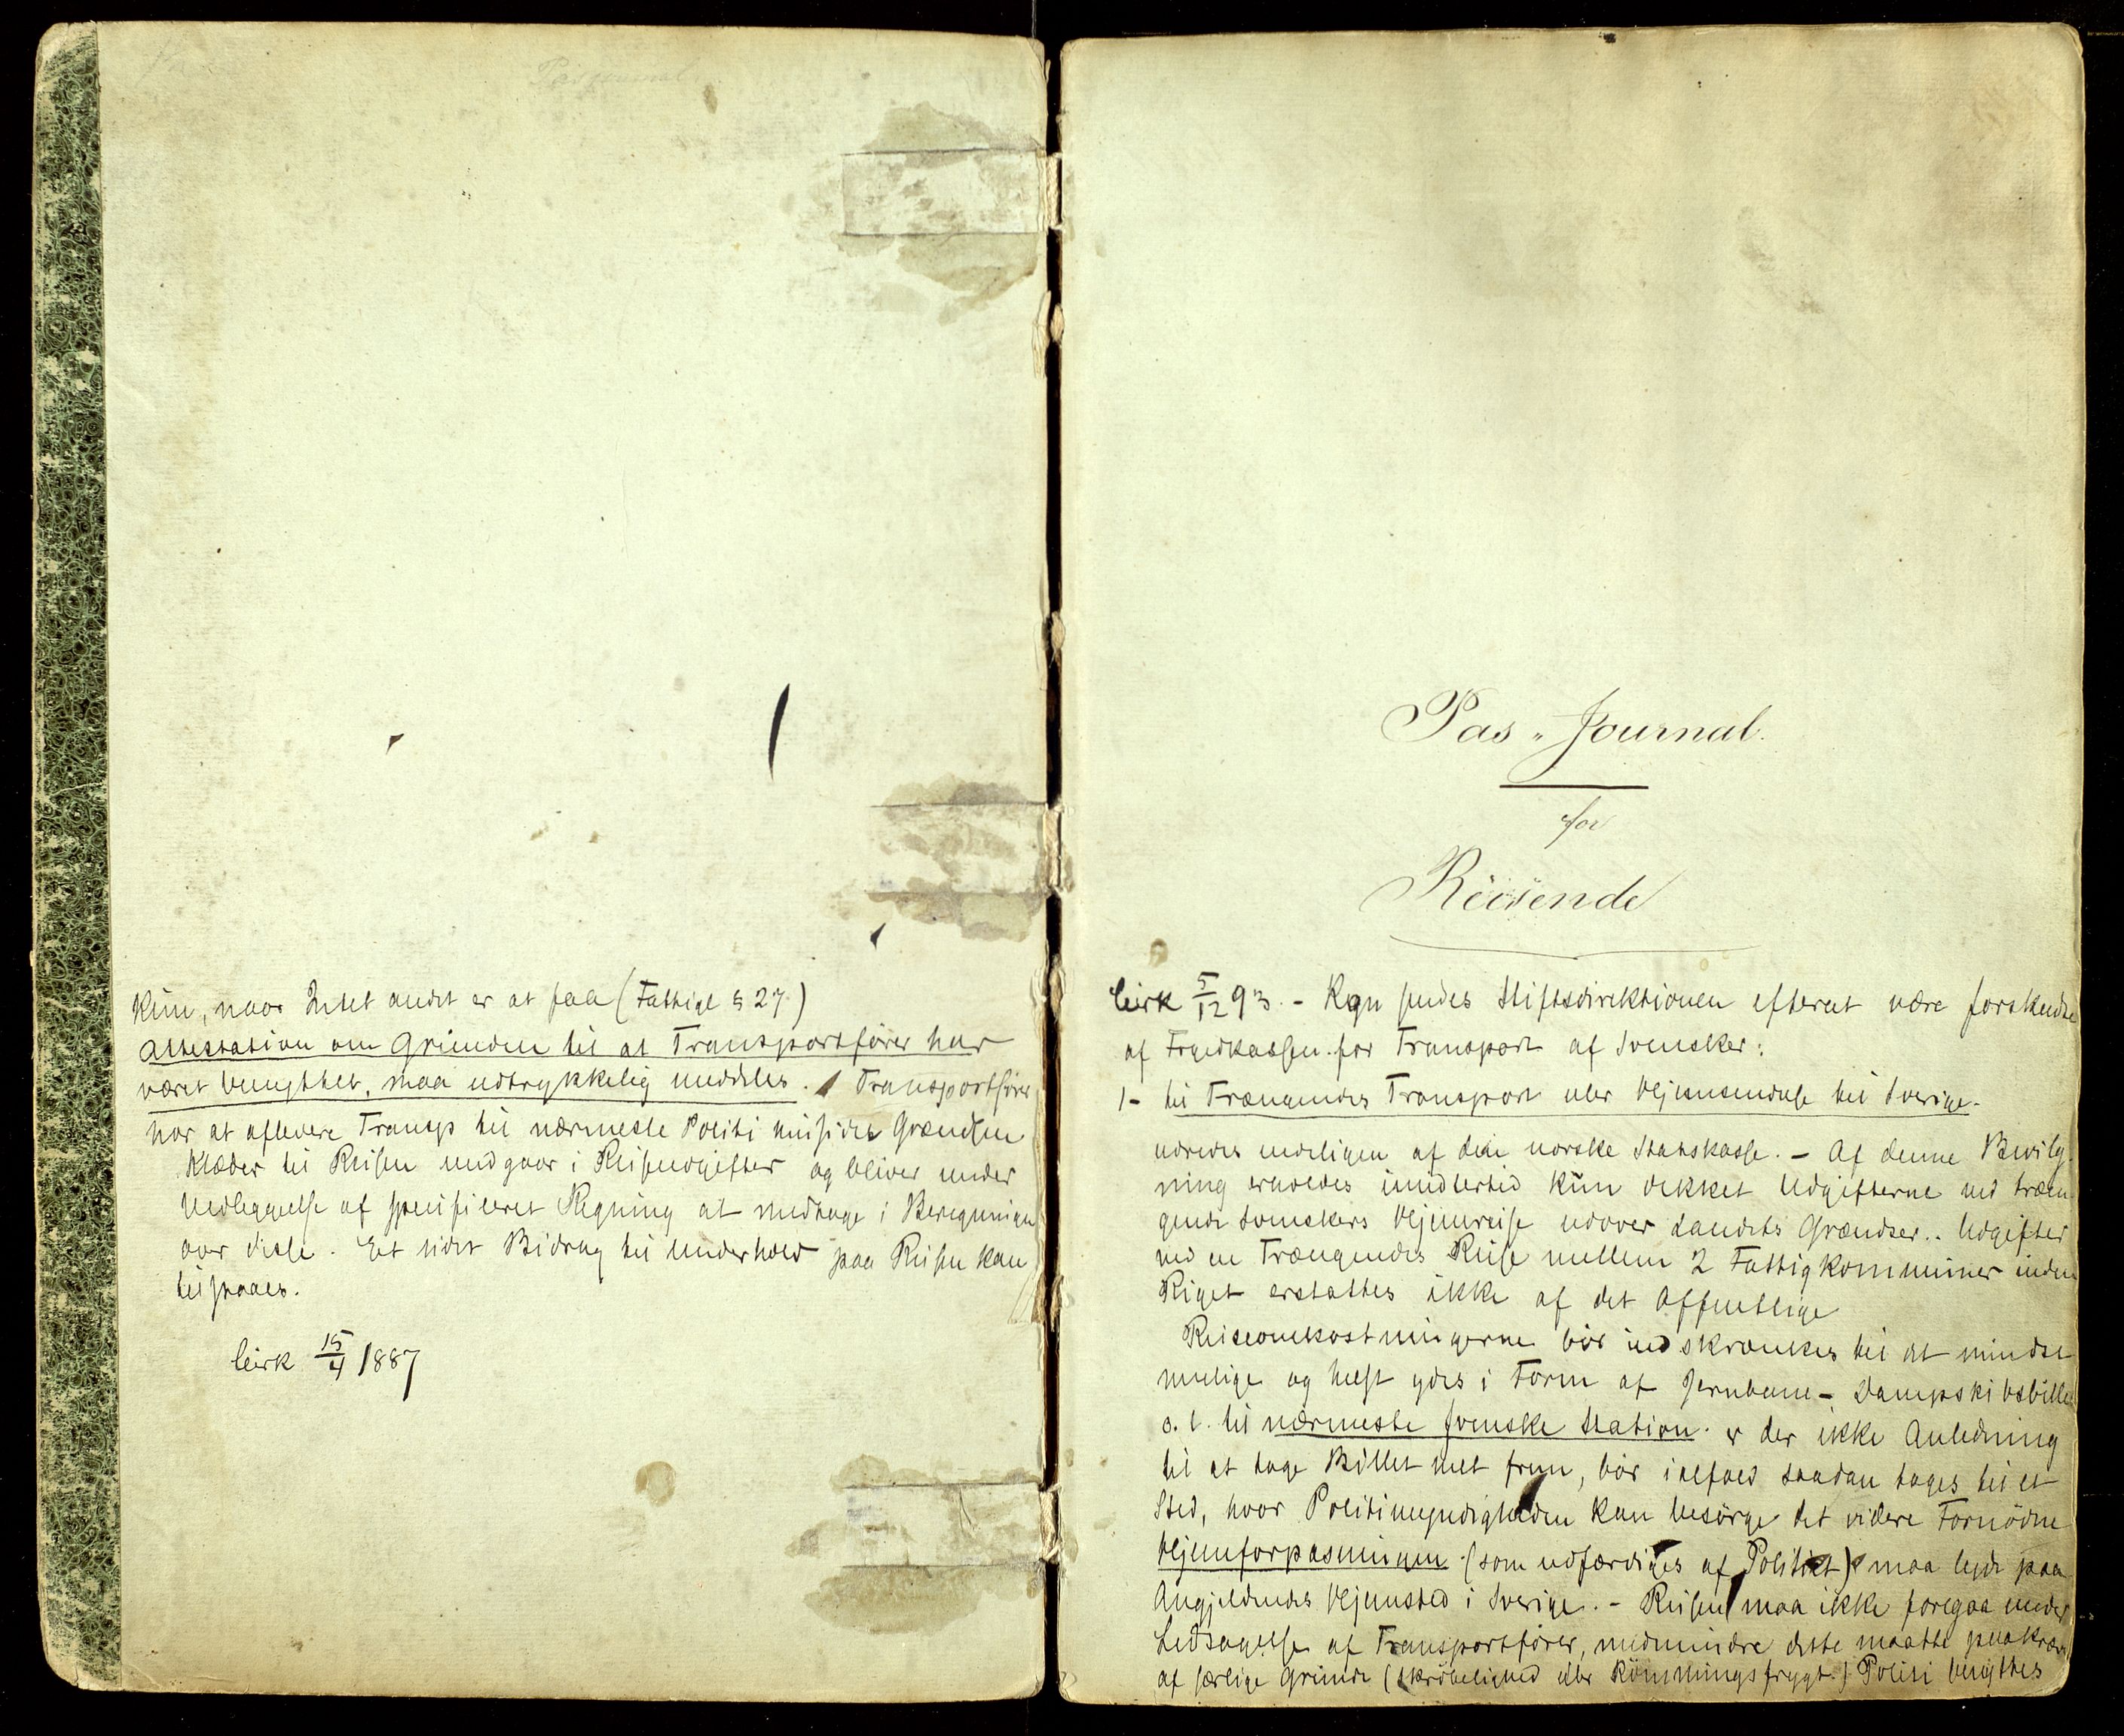 Pasjournal
Kun, naar Intet andet er at faa (Fattigl § 27)
Attestation om Grunden til at Transportfører har
været benyttet, maa udtrykkelig meddeles. Transportfører
har at aflevere Transp til nærmeste Politi hinsides Grændsen
Klæder til Reisen medgaar i Reiseudgifter og bliver under
Vedlæggelse af specificeret Regning at medtage i Beregningen
over disse. Et lidet Bidrag til Underhold paa Reisen kan
tilstaaes.
Cirk 15/4 1887
Pas-Journal
for
Reisende
Cirk 5/12 93. - Regn sendes Stiftsdirektionen efterat være forskudte
af Fogedkassen for Transport af Svensker:
1- til Trængendes Transport eller Hjemsendelse til Sverige.
udredes endeligen af den norske Statskasse. - Af denne Bevilg
ning erholdes imidlertid kun dekket Udgifterne ved træn
gende Svenskers Hjemreise udover Landets Grændser.. Udgifter
ved en Trængendes Reise mellem 2 Fattigkommuner inden
Riget erstattes ikke af det Offentlige
Reiseomkostningerne bør indskrænkes til det mindst
mulige og helst ydes i Form af Jernbane- Dampskibsbillet
o. l. til nærmeste svenske Station. er der ikke Anledning
til at tage Billet helt frem, bør ialfald saadan tages til et
Sted, hvor Politimyndigheden kan besørge det videre Fornødne
Hjemforpasningen (som udfærdiges af Politiet) maa lyde paa
Angjeldendes Hjemsted i Sverige. - Reisen maa ikke foregaa under
Ledsagelse af Transportfører, medmindre dette maatte paakræves
af særlige Grunde (skrøbelighed eller Rømningsfrygt.) Politi benyttes